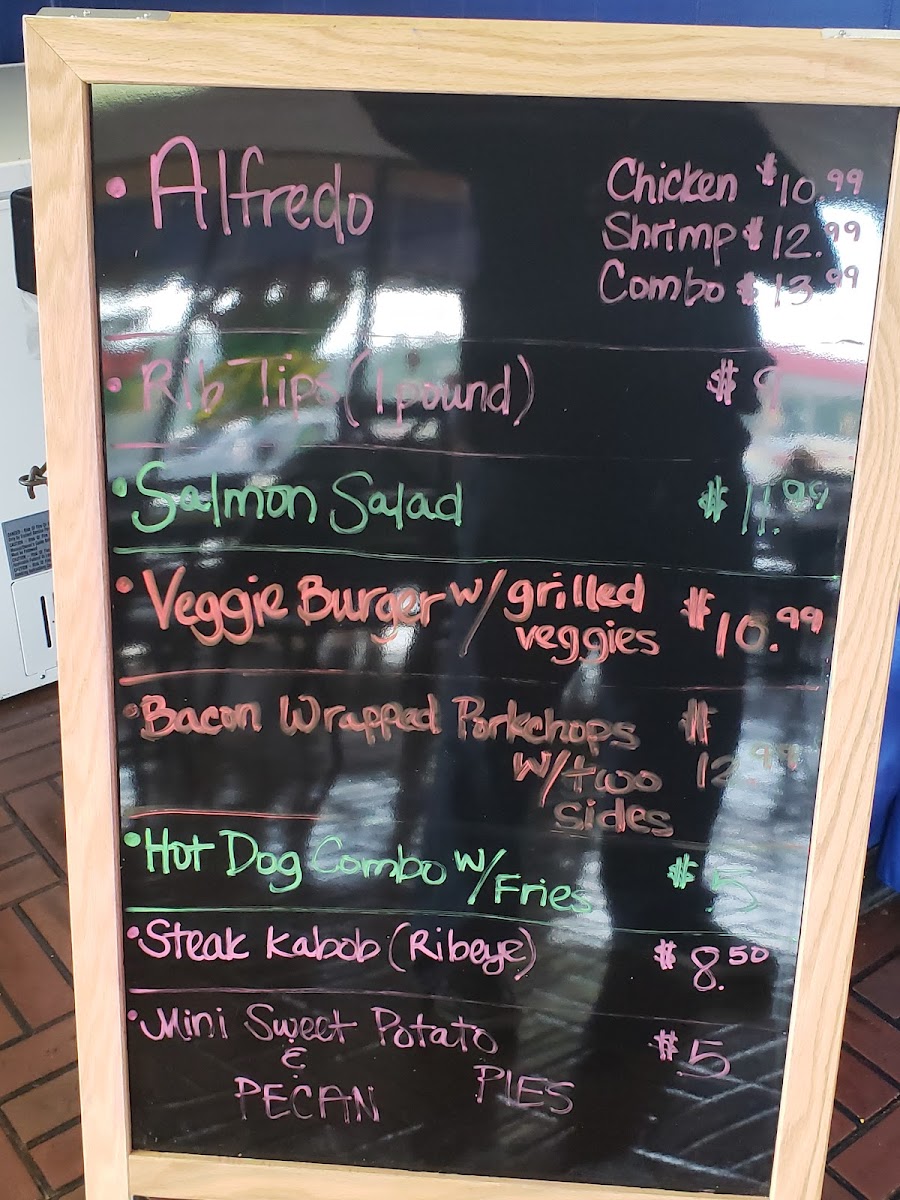 • Alfredo
Chicken $10.99
Shrimp $12.99
Combo $13.99
• Rib Tips (1 pound) $9
• Salmon Salad $11.99
• Veggie Burger w/ grilled veggies $10.99
• Bacon Wrapped Porkchops $
w/two 12.99
sides
• Hot Dog Combo w/ Fries $5
• Steak Kabob (Ribeye) $8.50
• Mini Sweet Potato $5
&
PECAN PIES